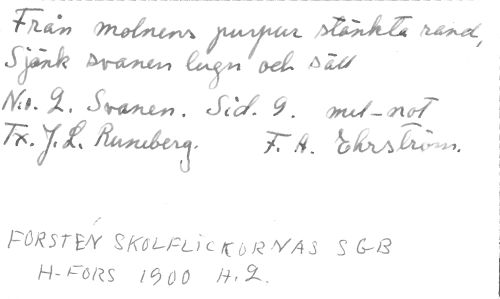 Från molnens purpur stänkta rand,
Sjönk svanen lugn och säll
No. 2. Svanen. Sid. 9. mel-not
Tx. J. L. Runeberg. F. A. Ehrström.
FORSTÉN SKOLFLICKORNAS SGB
H-FORS 1900 H. 2.